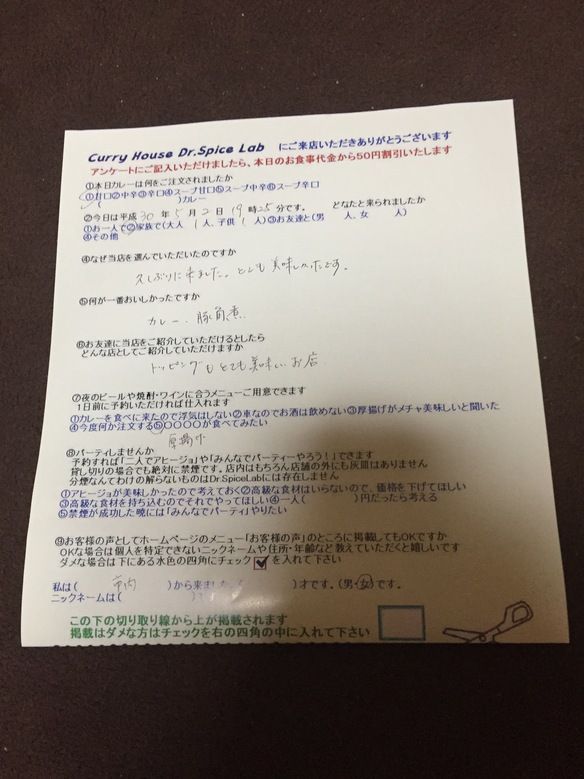 Curry House Dr.Spice Lab にご来店いただきありがとうございます
アンケートにご記入いただけましたら、本日のお食事代金から50円割引いたします
①本日カレーは何をご注文されましたか
①甘口②中辛③辛口④スープ甘口⑤スープ中辛⑥スープ辛口
( )カレー
②今日は平成 30 年 5 月 2 日 19 時 25 分です。 どなたと来られましたか
①お一人で②家族で(大人 1 人、子供 1 人)③お友達と(男 人、女 人)
④その他
④なぜ当店を選んでいただいたのですか
久しぶりに来ました。とても美味しかったです。
⑤何が一番おいしかったですか
カレー、豚角煮
⑥お友達に当店をご紹介していただけるとしたら
どんな店としてご紹介していただけますか
トッピングもとても美味しいお店
⑦夜のビールや焼酎・ワインに合うメニューご用意できます
1日前に予約いただければ仕入れます
①カレーを食べに来たので浮気はしない②車なのでお酒は飲めない③厚揚げがメチャ美味しいと聞いた
④今度何か注文する⑤〇〇〇〇が食べてみたい
厚揚げ
⑧パーティしませんか
予約すれば「二人でアヒージョ」や「みんなでパーティーやろう!」できます
貸し切りの場合でも絶対に禁煙です。店内はもちろん店舗の外にも灰皿はありません
分煙なんてわけの解らないものはDr.SpiceLabには存在しません
①アヒージョが美味しかったので考えておく②高級な食材はいらないので、価格を下げてほしい
③高級な食材を持ち込むのでそれでやってほしい④一人( )円だったら考える
⑤禁煙が成功した暁には「みんなでパーティ」やりたい
⑨お客様の声としてホームページのメニュー「お客様の声」のところに掲載してもOKですか
OKな場合は個人を特定できないニックネームや住所・年齢など教えていただくと嬉しいです
ダメな場合は下にある水色の四角にチェック を入れて下さい
私は( 市内 )から来ました。( )才です。(男・女)です。
ニックネームは( )です
この下の切り取り線から上が掲載されます
掲載はダメな方はチェックを右の四角の中に入れて下さい